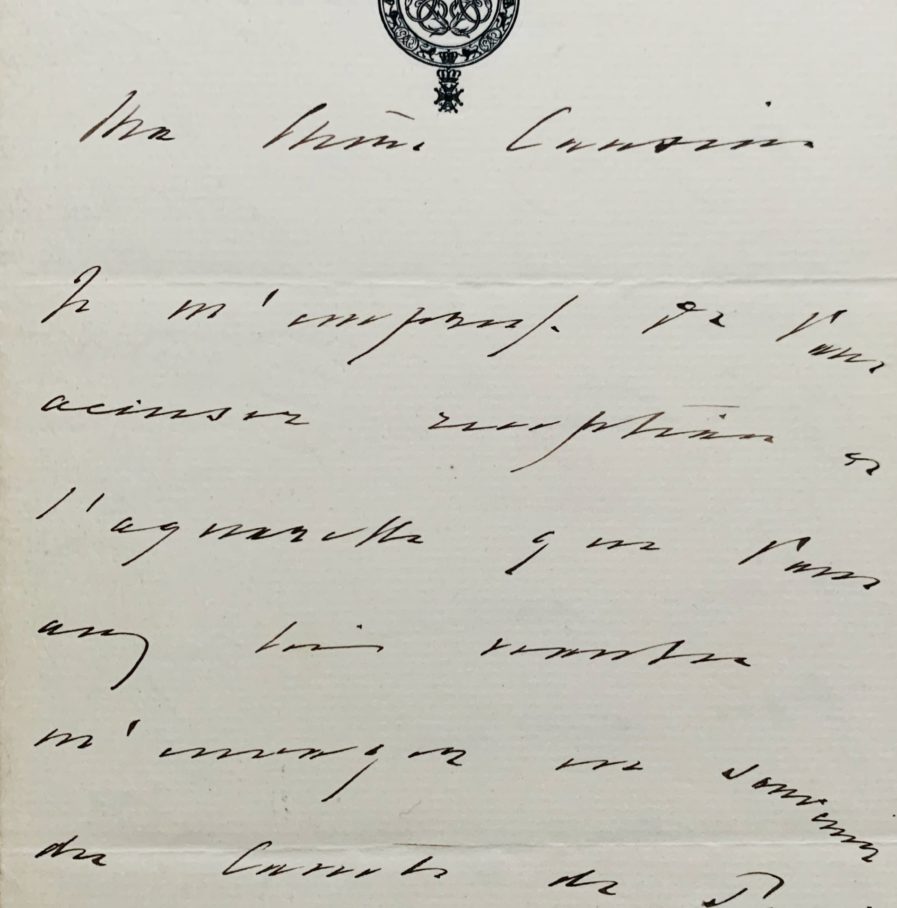 Ma chère Cousine
Je m'empresse de Vous
accuser réception de
l'aquarelle que Vous
avez bien voulu
m'envoyer en souvenir
du de